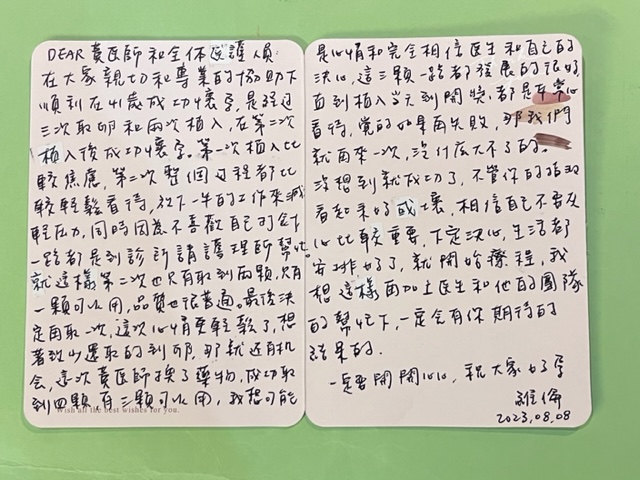 DEAR 費医師和全体医護人員:
在大家親切和專業的協助下
順利在41歲成功懷孕,是經過
三次取卵和兩次植入,在第二次
植入後成功懷孕。第一次植入比
較焦慮,第二次整個过程都比
較輕鬆看待,放下一半的工作來減
輕压力,同時因為不喜歡自己打針
一路都是到診所請護理師幫忙。
就這樣第二次也只有取到兩顆,只有
一顆可以用,品質也很普通。最後決
定再取一次,這次心情更輕鬆了,想
著至少還取的到卵,那就还有机
会,這次費医師換了藥物,成功取
到四顆,有三顆可以用,我想可能
Wish all the best wishes for you.
是心情和完全相信医生和自己的
決心,這三顆一路都發展的很好,
直到植入当天到開獎,都是平常心
看待,覺的如果再失敗,那我們
就再來一次,沒什広大不了的。
沒想到就成功了,不管你的指數
看起來好或壞,相信自己不要灰
心比較重要,下定決心,生活都
安排好了,就開始療程,我
想這樣再加上医生和他的團隊
的幫忙下,一定会有你期待的
結果的.
一定要開開心心,祝大家好孕
雅倫
2023.08.08